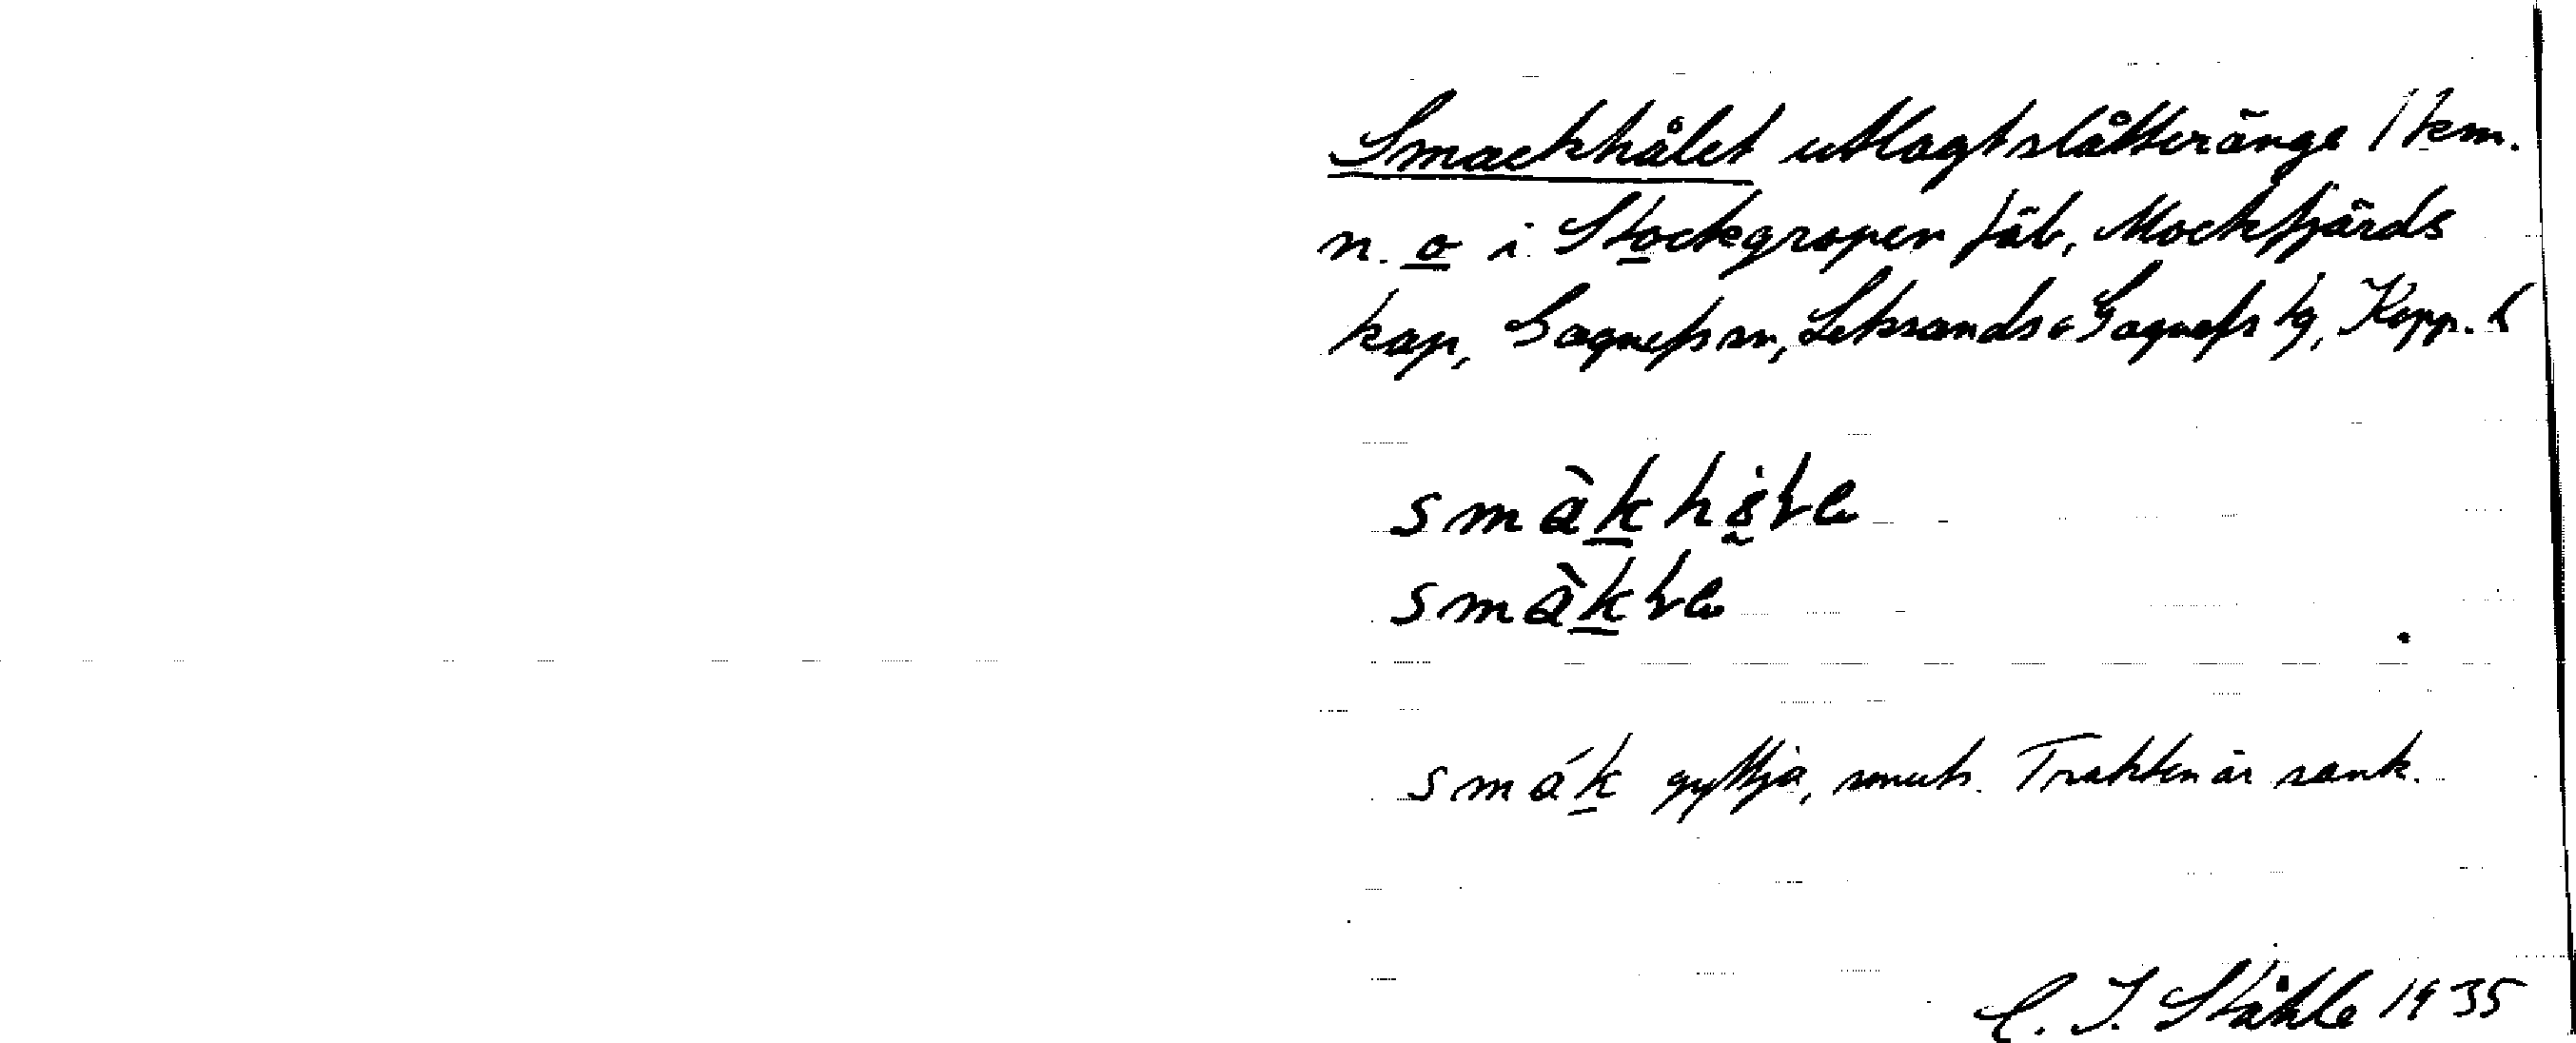 Smackhålet utlagt slåtteränge 1 km.
n. o i. Stockgropen fäb, Mockfjärds
kap, Gagnefs sn, Leksands o Gagnefs tg, Kopp. l
smàk
smàk
smák gyttja, smuts. Trakten är sank.
C. I. Ståhle 1935